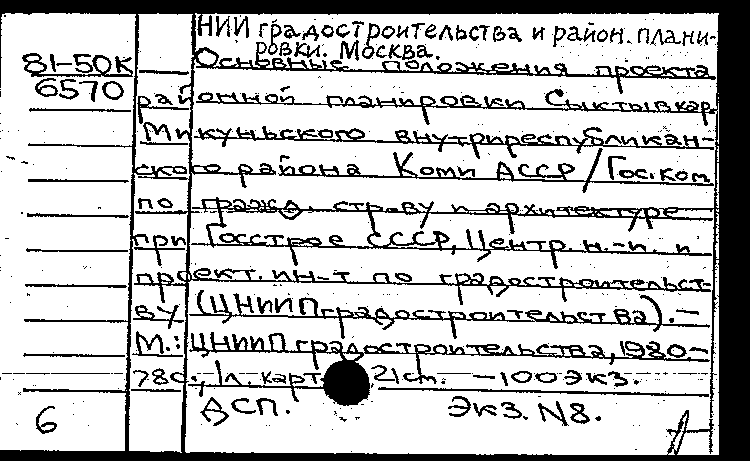 НИИ градостроительства и район. плани-
ровки. Москва.
81-50К
6570
Основные положения проекта
районной планировки Сыктывкар
Микуньского внутриреспубликан-
ского района Коми АССР / Гос. ком
по гражд. стр-ву и архитектуре
при Госстрое СССР, Центр. н.-и. и
проект. ин-т по градостроительст-
ву (ЦНИИПградостроительства). –
М.: ЦНИИПградостроительства, 1980–
78с., 1л. карт 21ст. – 100 экз.
ДСП. Экз. N8.
6